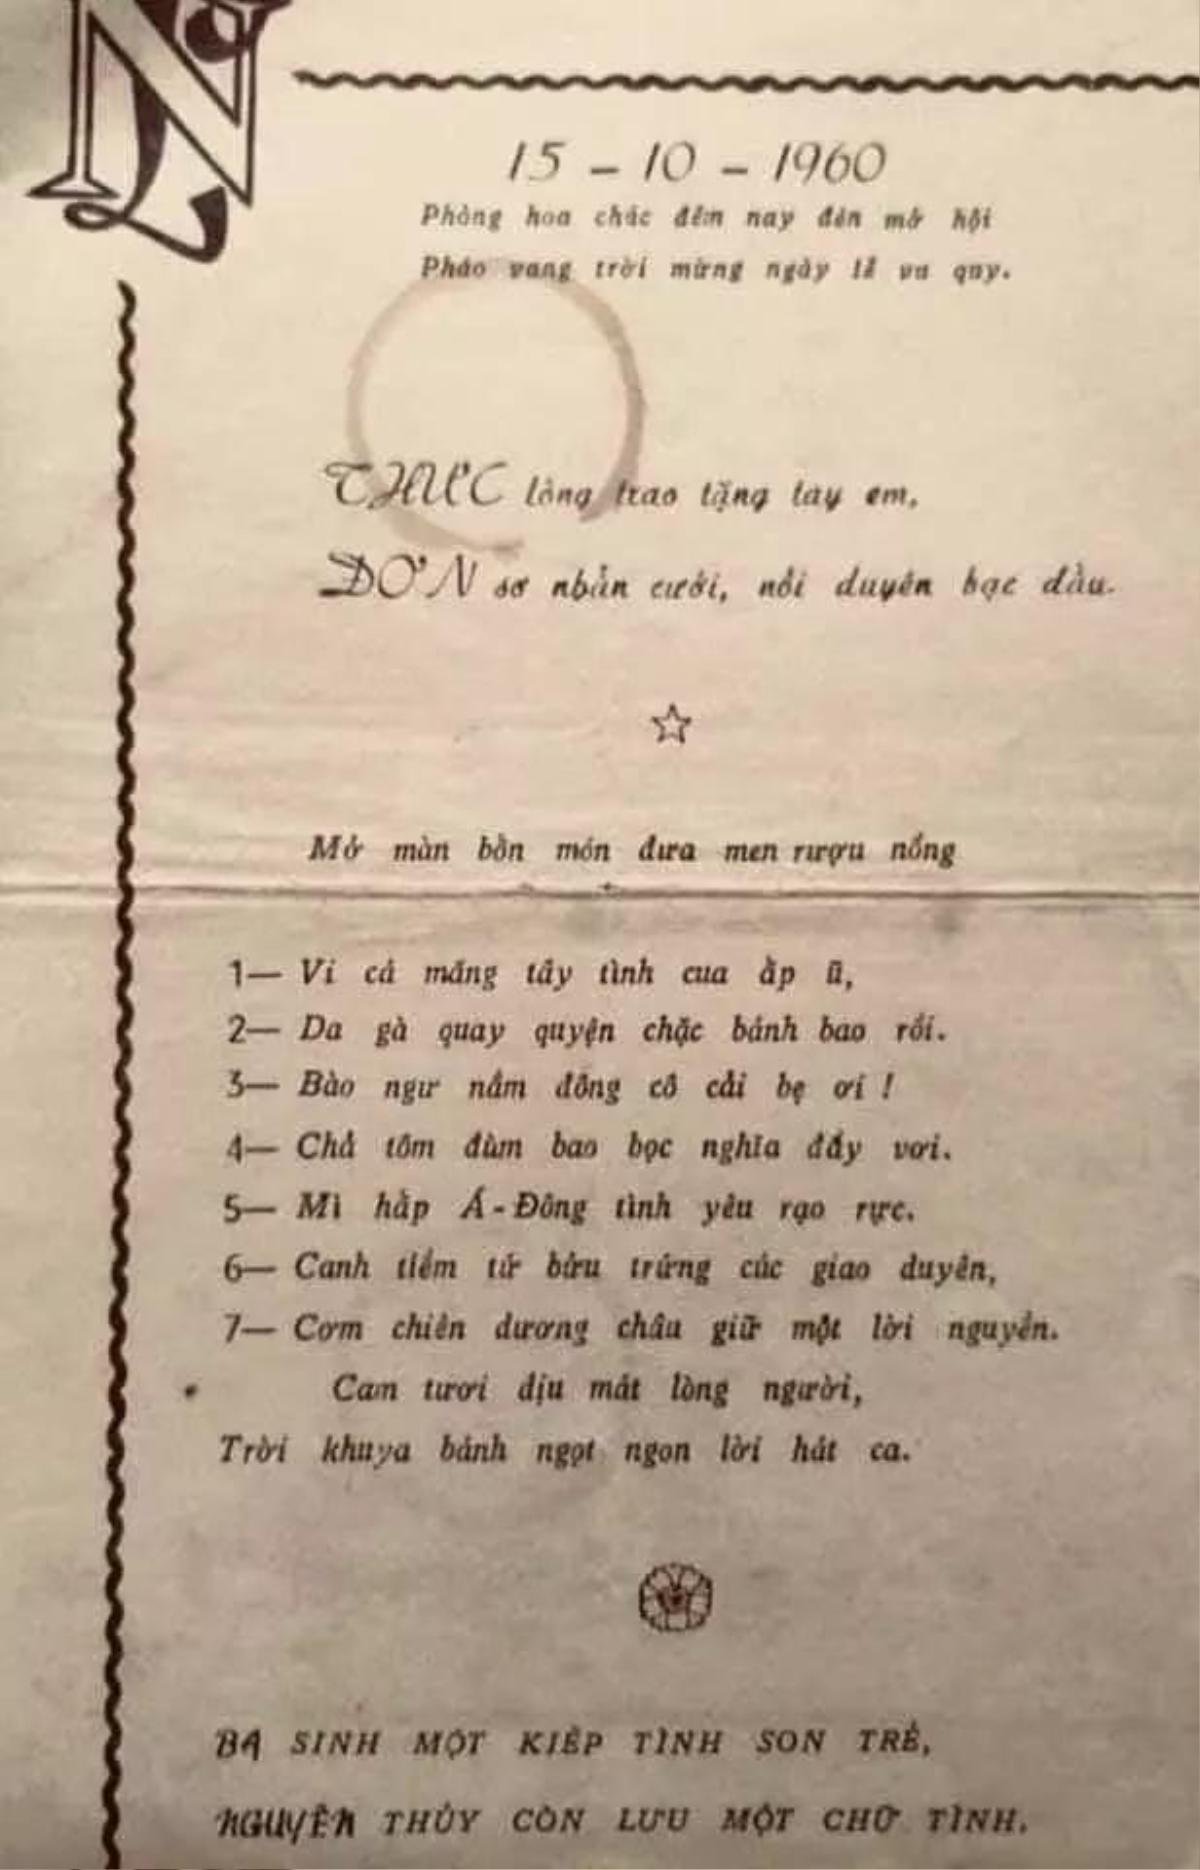 NL
15 - 10 - 1960
Phòng hoa chúc đêm nay đèn mở hội
Pháo vang trời mừng ngày lễ vu quy.
THỰC lòng trao tặng tay em,
ĐƠN sơ nhẫn cưới, nối duyên bạc đầu.
Mở màn bồn món đưa men rượu nồng
1— Vi cá măng tây tình cua ấp ủ,
2— Da gà quay quyện chặc bánh bao rồi.
3— Bào ngư nấm đông cô cải bẹ ơi !
4— Chả tôm đùm bao bọc nghĩa đầy vơi.
5— Mì hấp Á - Đông tình yêu rạo rực.
6— Canh tiềm tứ bửu trứng cúc giao duyên,
7— Cơm chiên dương châu giữ một lời nguyền.
Cam tươi dịu mát lòng người,
Trời khuya bánh ngọt ngon lời hát ca.
BA SINH MỘT KIẾP TÌNH SON TRẺ,
NGUYÊN THỦY CÒN LƯU MỘT CHỮ TÌNH.